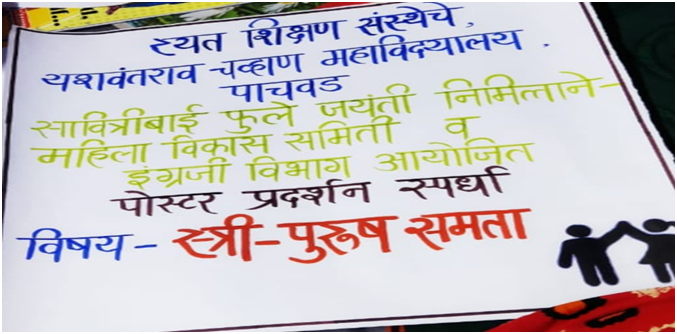 रयत शिक्षण संस्थेचे,
यशवंतराव चव्हाण महाविद्यालय.
पाचवड
सावित्रीबाई फुले जयंती निमित्ताने-
महिला विकास समिती व
इंग्रजी विभाग आयोजित
पोस्टर प्रदर्शन स्पर्धा
विषय - स्त्री-पुरूष समता